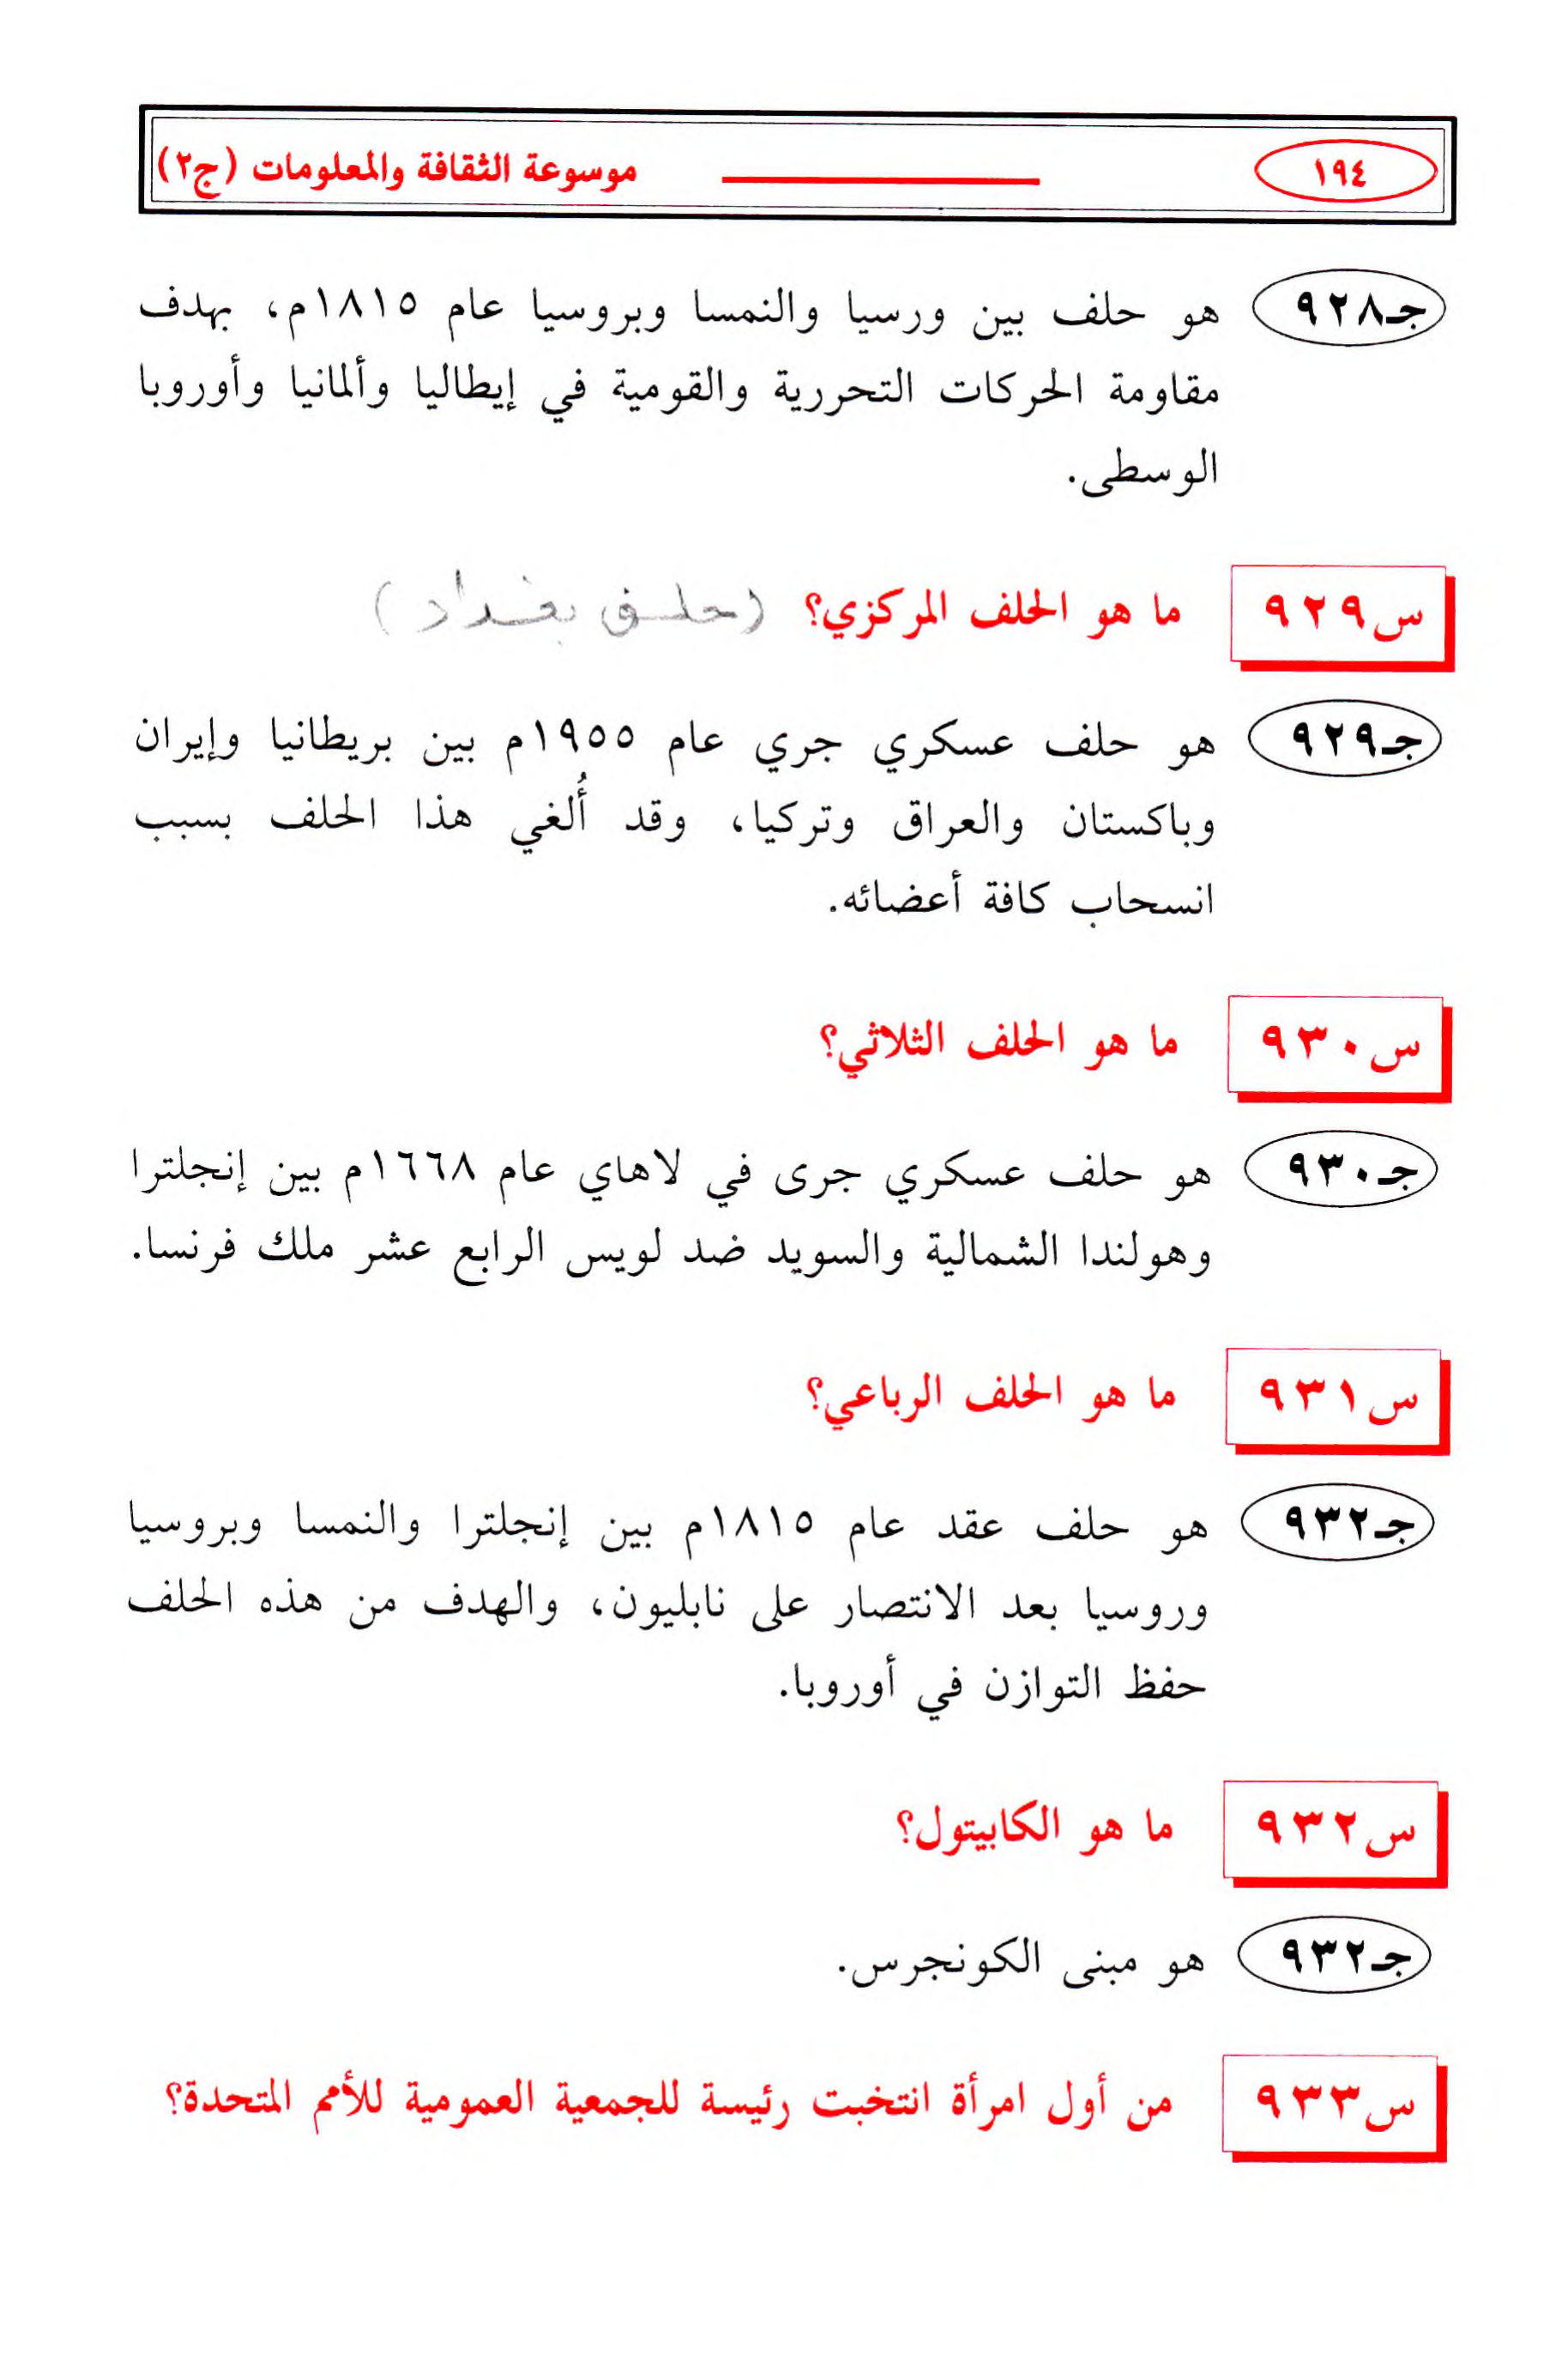 ١٩٤ موسوعة الثقافة والمعلومات (ج٢)
جـ٩٢٨ هو حلف بين ورسيا والنمسا وبروسيا عام ١٨١٥م، بهدف
مقاومة الحركات التحررية والقومية في إيطاليا وألمانيا وأوروبا
الوسطى.
س٩٢٩ ما هو الحلف المركزي؟ (حلف بغداد)
جـ٩٢٩ هو حلف عسكري جري عام ١٩٥٥م بين بريطانيا وإيران
وباكستان والعراق وتركيا، وقد أُلغي هذا الحلف بسبب
انسحاب كافة أعضائه.
س٩٣٠ ما هو الحلف الثلاثي؟
جـ٩٣٠ هو حلف عسكري جرى في لاهاي عام ١٦٦٨م بين إنجلترا
وهولندا الشمالية والسويد ضد لويس الرابع عشر ملك فرنسا.
س٩٣١ ما هو الحلف الرباعي؟
جـ٩٣٢ هو حلف عقد عام ١٨١٥م بين إنجلترا والنمسا وبروسيا
وروسيا بعد الانتصار على نابليون، والهدف من هذه الحلف
حفظ التوازن في أوروبا.
س٩٣٢ ما هو الكابيتول؟
جـ٩٣٢ هو مبنى الكونجرس.
س٩٣٣ من أول امرأة انتخبت رئيسة للجمعية العمومية للأمم المتحدة؟